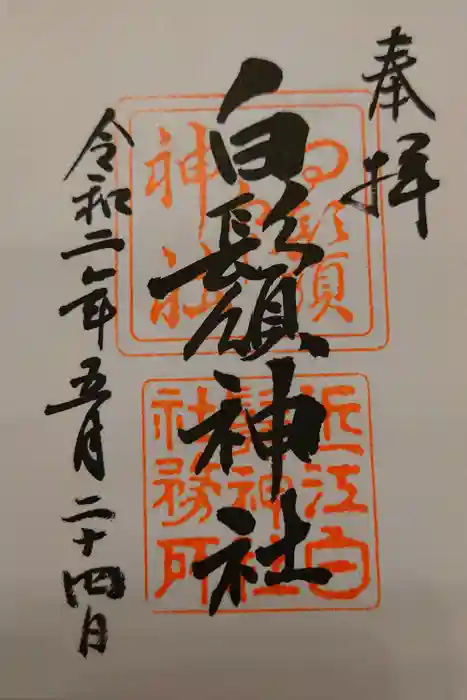 奉拝
白鬚神社
令和二年五月二十四日
白鬚神社
近江白鬚神社社務所